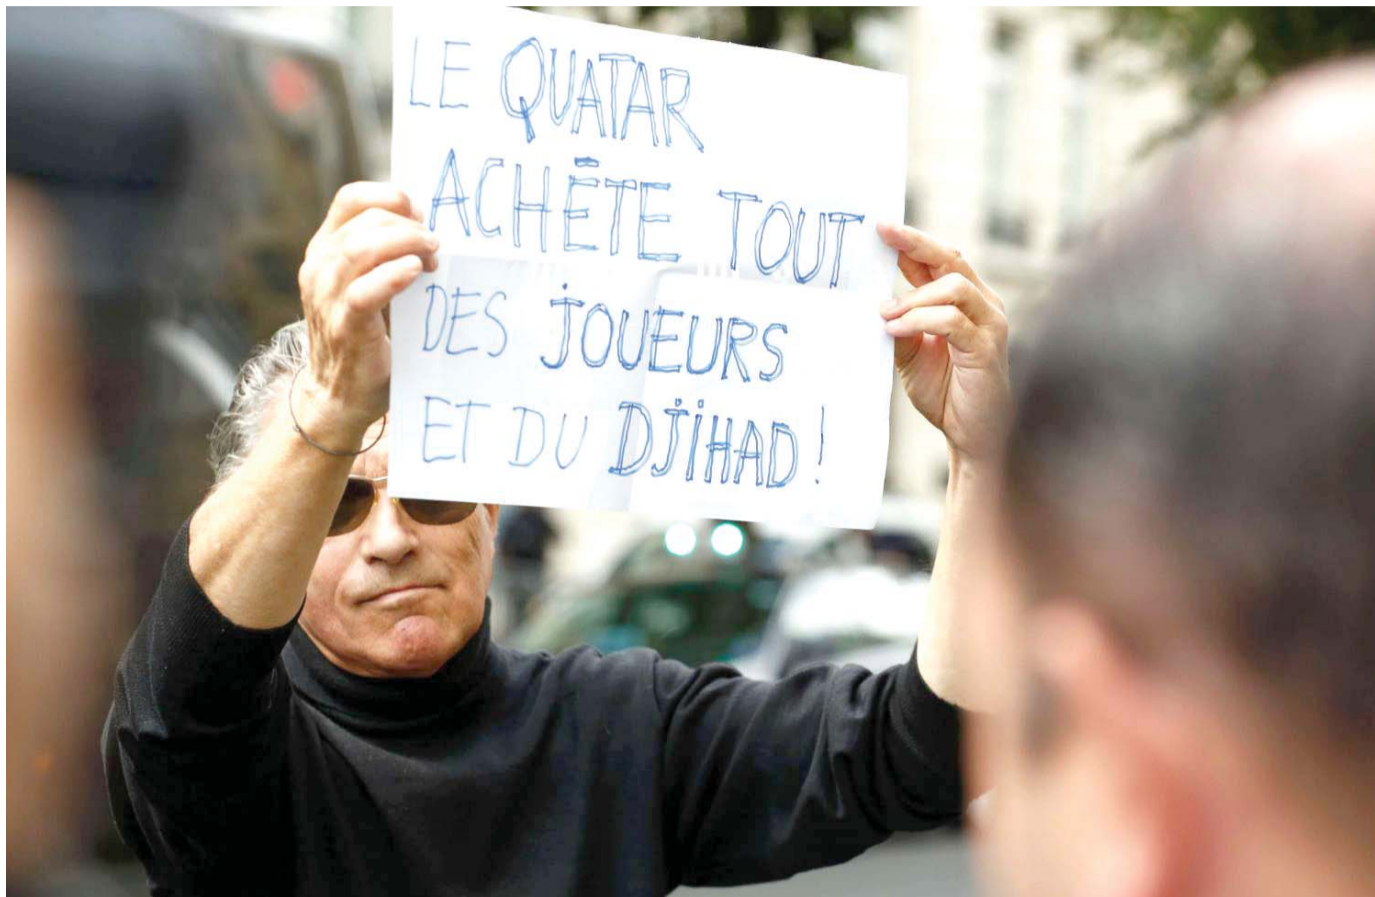 LE QUATAR
ACHĒTE TOUT
DES JOUEURS
ET DU DJIHAD !